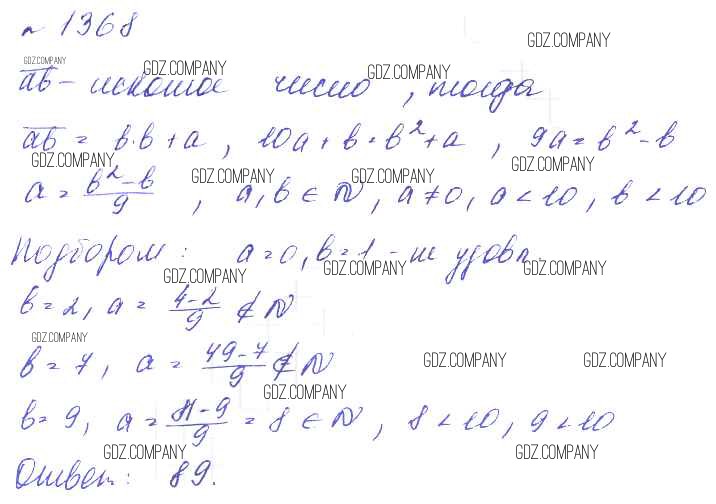 № 1368
GDZ.COMPANY
GDZ.COMPANY GDZ.COMPANY GDZ.COMPANY
ab - искомое число, тогда
ab = b·b + a, 10a + b = b² + a, 9a = b² - b
GDZ.COMPANY GDZ.COMPANY GDZ.COMPANY GDZ.COMPANY
a = (b² - b)/9, a, b ∈ N, a ≠ 0, a < 10, b < 10
Подбором: a = 0, b = 1 - не удовл.
GDZ.COMPANY GDZ.COMPANY GDZ.COMPANY
b = 2, a = (4 - 2)/9 ∉ N
GDZ.COMPANY
b = 7, a = (49 - 7)/9 ∉ N
GDZ.COMPANY GDZ.COMPANY
GDZ.COMPANY
b = 9, a = (81 - 9)/9 = 8 ∈ N, 8 < 10, 9 < 10
GDZ.COMPANY GDZ.COMPANY
Ответ: 89.